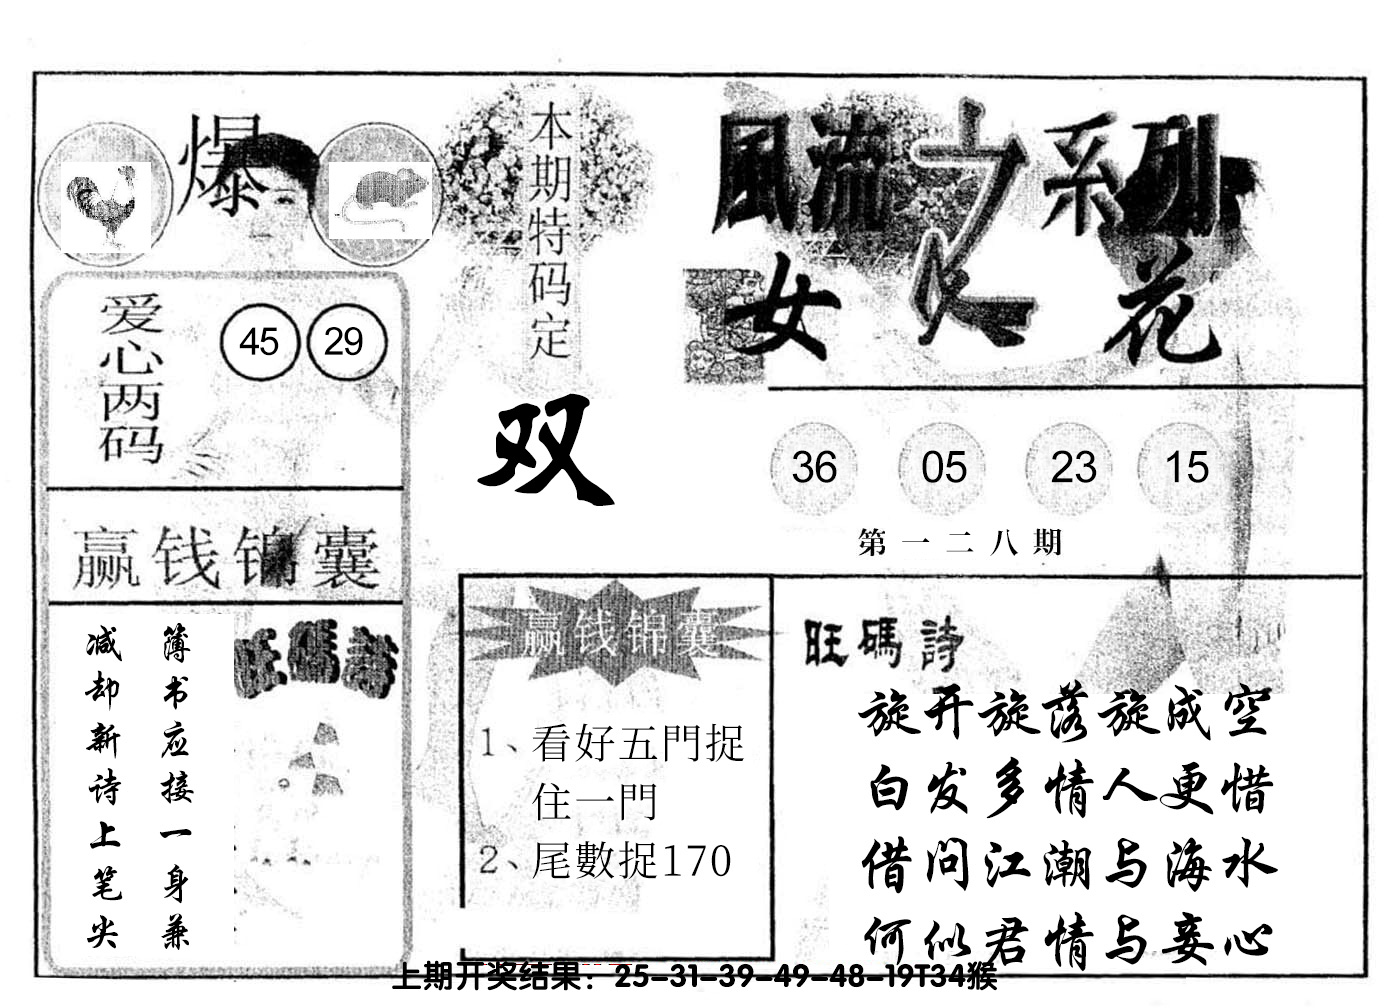 爆
本期特码定
双
風流之系列
女人花
爱心两码
45 29
36 05 23 15
第一二八期
赢钱锦囊
旺碼詩
簿书应接一身兼
减却新诗上笔尖
赢钱锦囊
1、看好五門捉
住一門
2、尾數捉170
旺碼詩
旋开旋落旋成空
白发多情人更惜
借问江潮与海水
何似君情与妾心
上期开奖结果：25-31-39-49-48-19T34猴